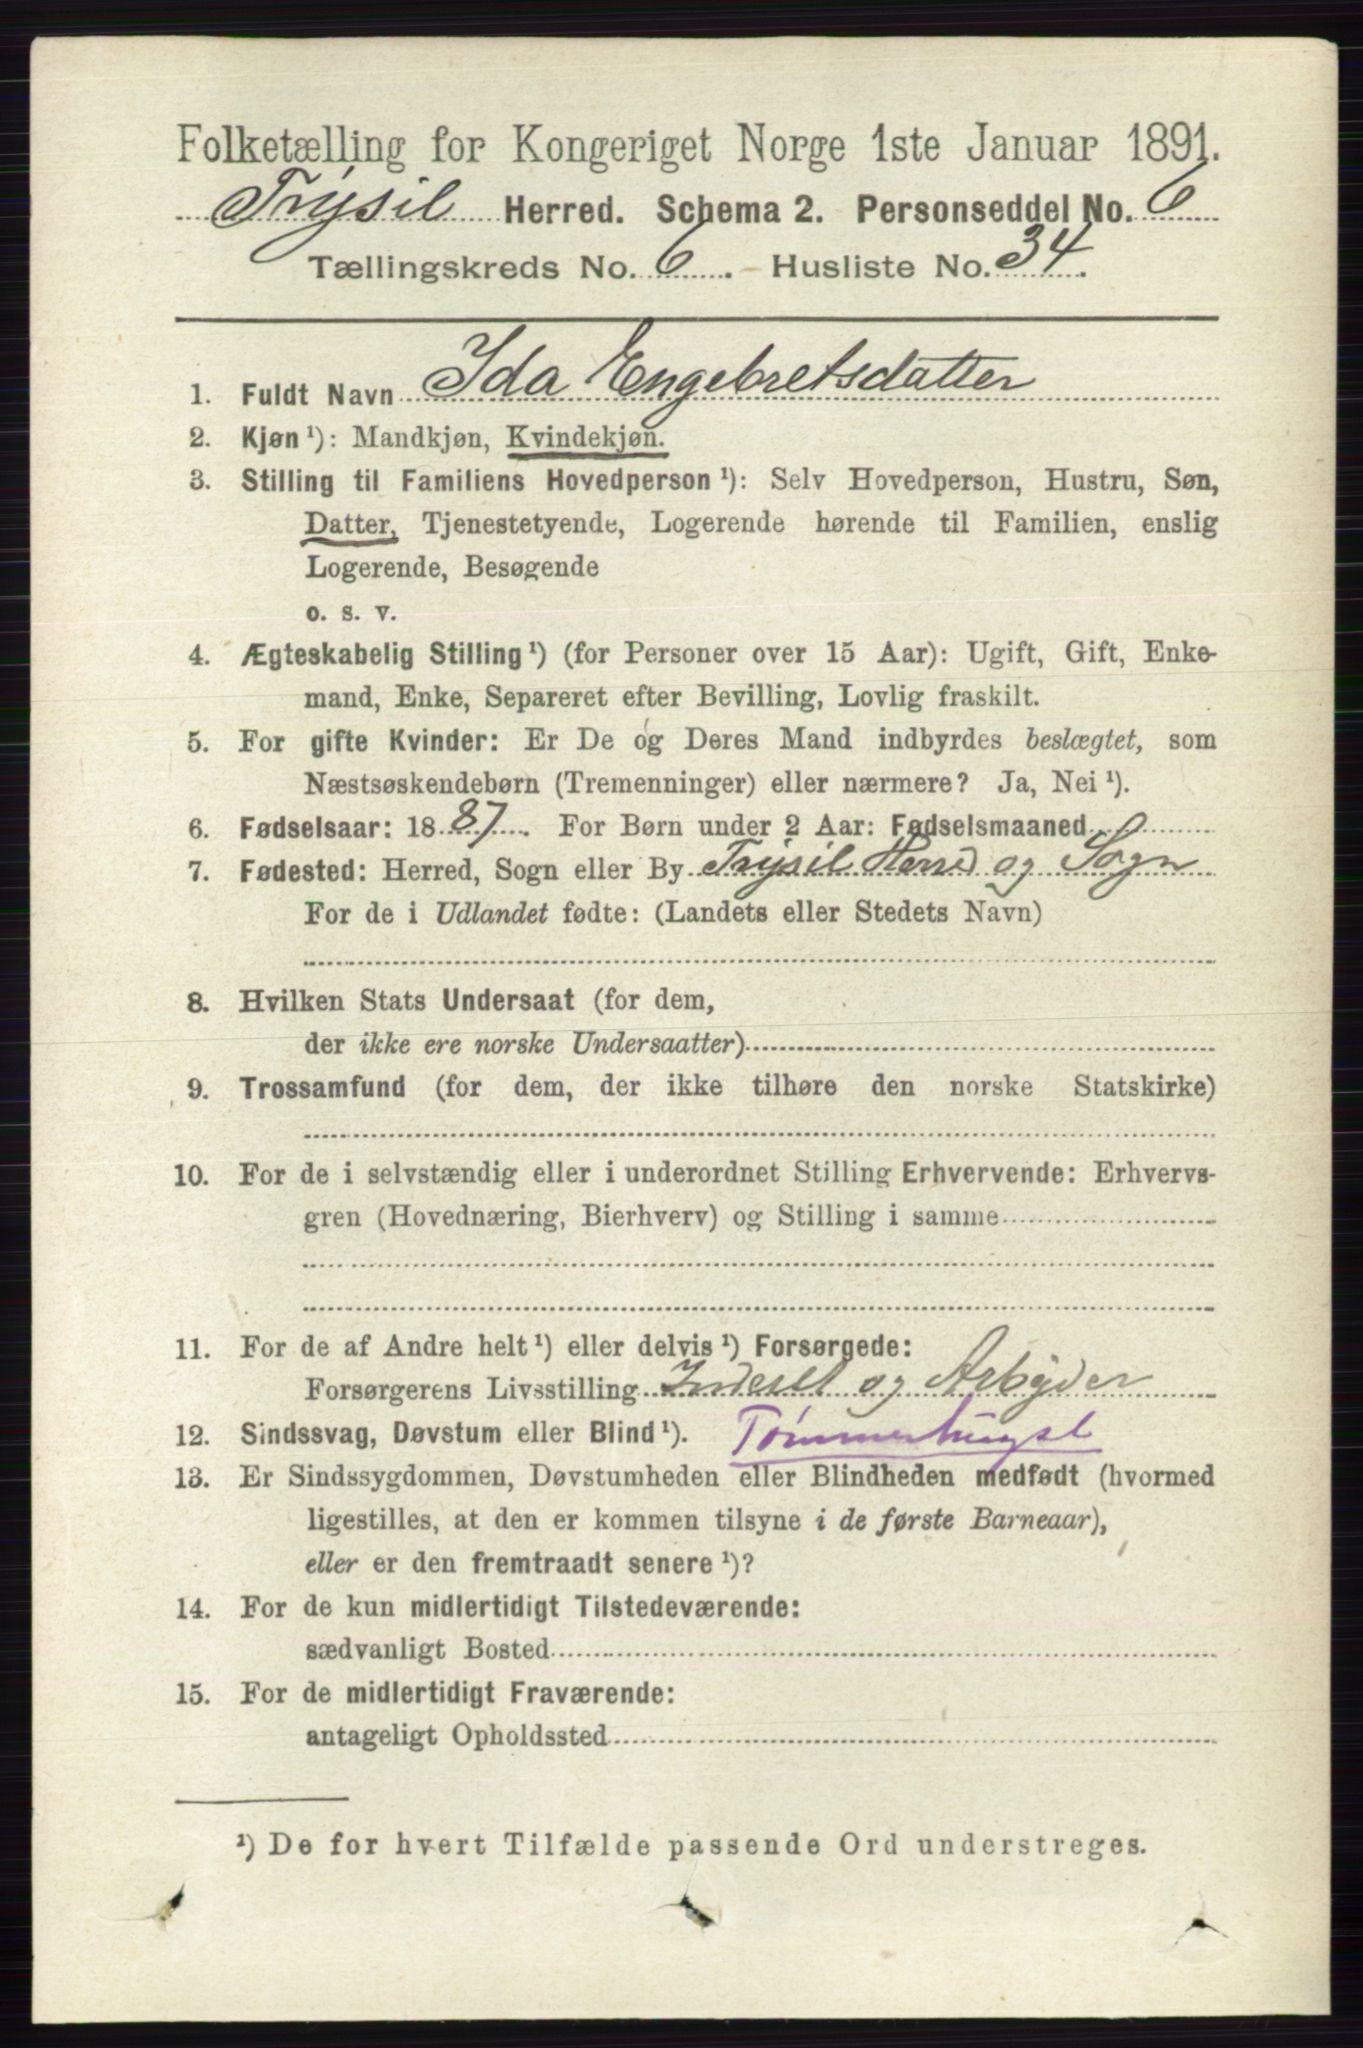 Folketælling for Kongeriget Norge 1ste Januar 1891.
Trysil Herred. Schema 2. Personseddel No. 6
Tællingskreds No. 6. Husliste No. 34.
1. Fuldt Navn Ida Engebretsdatter
2. Kjøn ¹): Mandkjøn, Kvindekjøn.
3. Stilling til Familiens Hovedperson ¹): Selv Hovedperson, Hustru, Søn,
Datter, Tjenestetyende, Logerende hørende til Familien, enslig
Logerende, Besøgende
o. s. v.
4. Ægteskabelig Stilling ¹) (for Personer over 15 Aar): Ugift, Gift, Enke-
mand, Enke, Separeret efter Bevilling, Lovlig fraskilt.
5. For gifte Kvinder: Er De og Deres Mand indbyrdes beslægtet, som
Næstsøskendebørn (Tremenninger) eller nærmere? Ja, Nei ¹).
6. Fødselsaar: 1887. For Børn under 2 Aar: Fødselsmaaned
7. Fødested: Herred, Sogn eller By Trysil Herred og Sogn
For de i Udlandet fødte: (Landets eller Stedets Navn)
8. Hvilken Stats Undersaat (for dem,
der ikke ere norske Undersaatter)
9. Trossamfund (for dem, der ikke tilhøre den norske Statskirke)
10. For de i selvstændig eller i underordnet Stilling Erhvervende: Erhvervs-
gren (Hovednæring, Bierhverv) og Stilling i samme
11. For de af Andre helt ¹) eller delvis ¹) Forsørgede:
Forsørgerens Livsstilling og Arbyder
12. Sindssvag, Døvstum eller Blind ¹). Tømmerhugst
13. Er Sindssygdommen, Døvstumheden eller Blindheden medfødt (hvormed
ligestilles, at den er kommen tilsyne i de første Barneaar),
eller er den fremtraadt senere ¹)?
14. For de kun midlertidigt Tilstedeværende:
sædvanligt Bosted
15. For de midlertidigt Fraværende:
antageligt Opholdssted
¹) De for hvert Tilfælde passende Ord understreges.